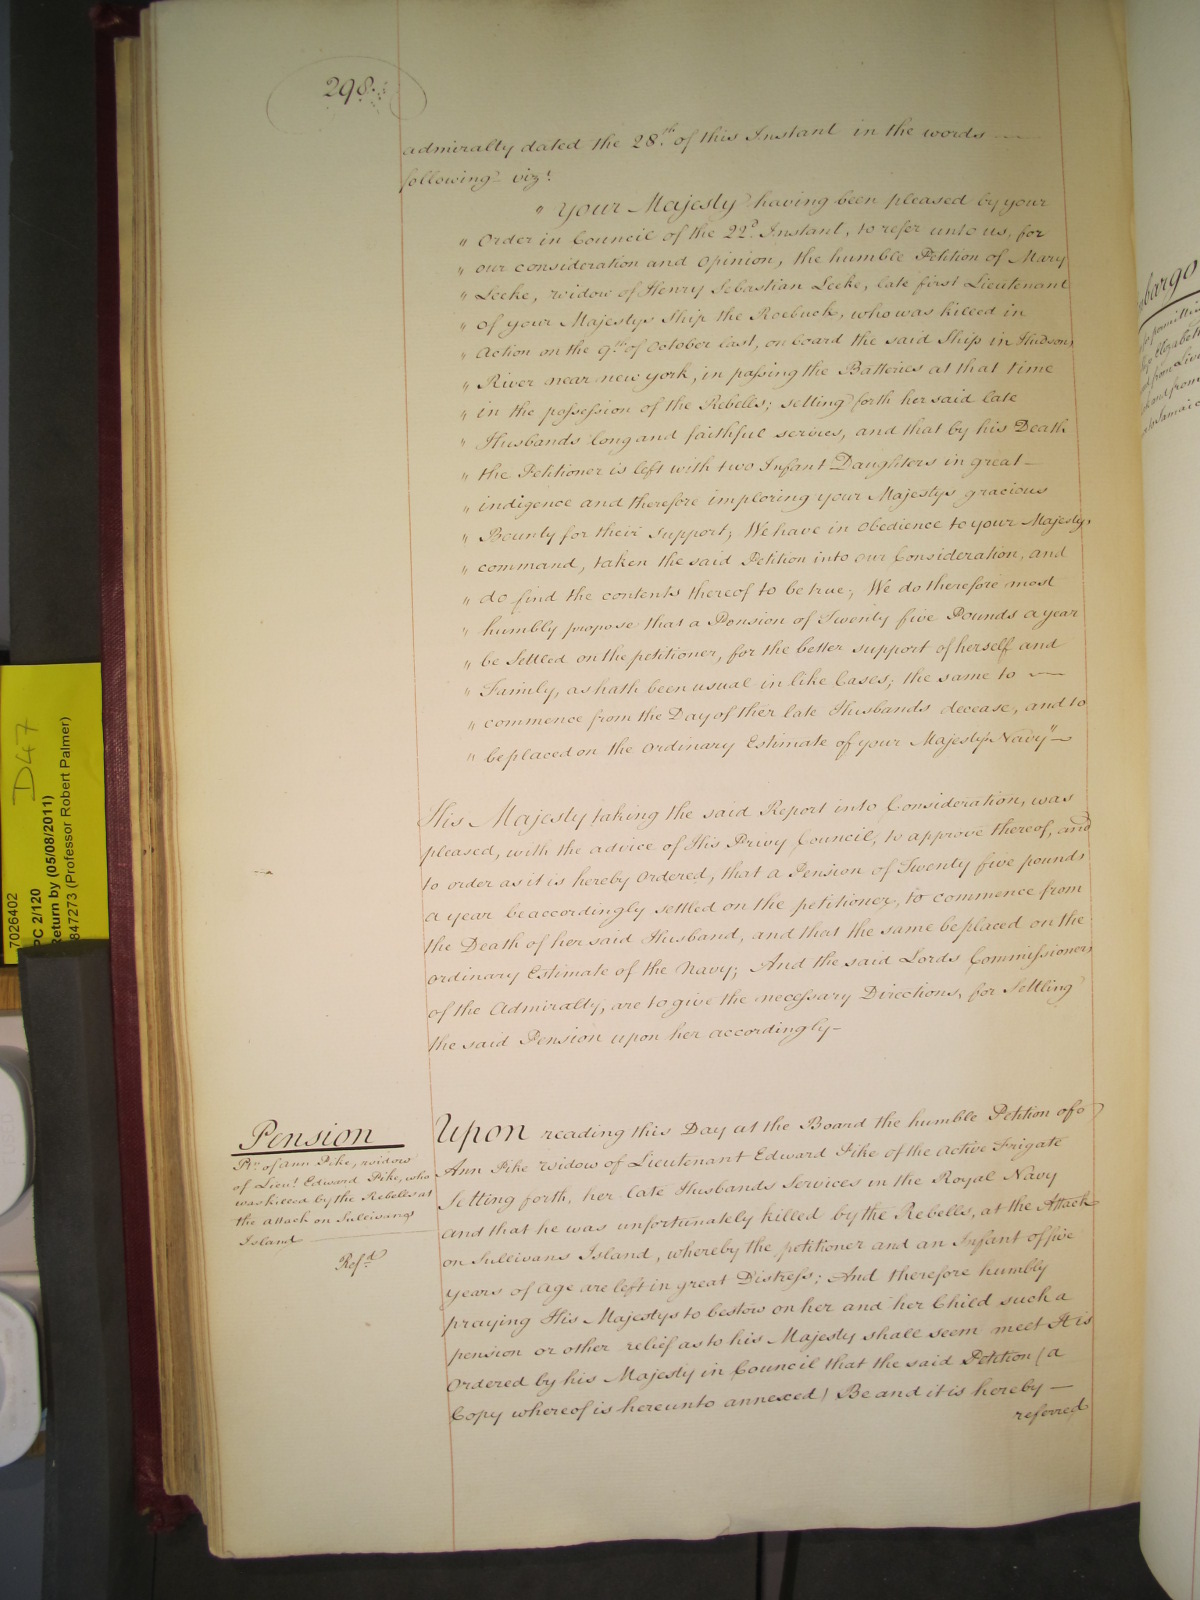 298.
admiralty dated the 28th. of this Instant in the words
following vizt.
" Your Majesty having been pleased by your
" Order in Council of the 22d. Instant, to refer unto us, for
" our consideration and Opinion, the humble Petition of Mary
" Leeke, widow of Henry Sebastian Leeke, late first Lieutenant
" of your Majestys Ship the Roebuck, who was killed in
" Action on the 9th of October last, on board the said Ship in Hudsons
" River near new york, in passing the Batteries at that time
" in the possession of the Rebells; setting forth her said late
" Husbands long and faithful services, and that by his Death
" the Petitioner is left with two Infant Daughters in great
" indigence and therefore imploring your Majestys gracious
" Bounty for their support; We have in obedience to your Majestys
" command, taken the said Petition into our Consideration, and
" do find the contents thereof to be true; We do therefore most
" humbly propose that a Pension of Twenty five Pounds a year
" be Settled on the petitioner, for the better support of herself and
" Family, as hath been usual in like Cases; the same to
" commence from the Day of their late Husbands decease, and to
" be placed on the Ordinary Estimate of your Majestys Navy"
His Majesty taking the said Report into Consideration, was
pleased, with the advice of His Privy Council, to approve thereof, and
to order as it is hereby Ordered, that a Pension of Twenty five pounds
a year be accordingly settled on the petitioner, to commence from
the Death of her said Husband, and that the same be placed on the
ordinary Estimate of the Navy; And the said Lords Commissioners
of the Admiralty, are to give the necessary Directions, for Settling
the said Pension upon her accordingly
Pension
Pn. of Ann Pike, widow
of Lieut. Edward Pike, who
was killed by the Rebells at
the attack on Sullivans
Island
Refd.
Upon reading this Day at the Board the humble Petition of
Ann Pike widow of Lieutenant Edward Pike of the active Frigate
Setting forth, her late Husbands Services in the Royal Navy
and that he was unfortunately killed by the Rebells, at the Attack
on Sullivans Island, whereby the petitioner and an Infant of five
years of Age are left in great Distress; And therefore humbly
praying His Majestys to bestow on her and her Child such a
pension or other relief as to his Majesty shall seem meet It is
Ordered by his Majesty in Council that the said Petition (a
Copy whereof is hereunto annexed) Be and it is hereby
referred
D47
7026402
PC 2/120
Return by (05/08/2011)
847273 (Professor Robert Palmer)
bargo
Elizabeth
and from
Jamaic